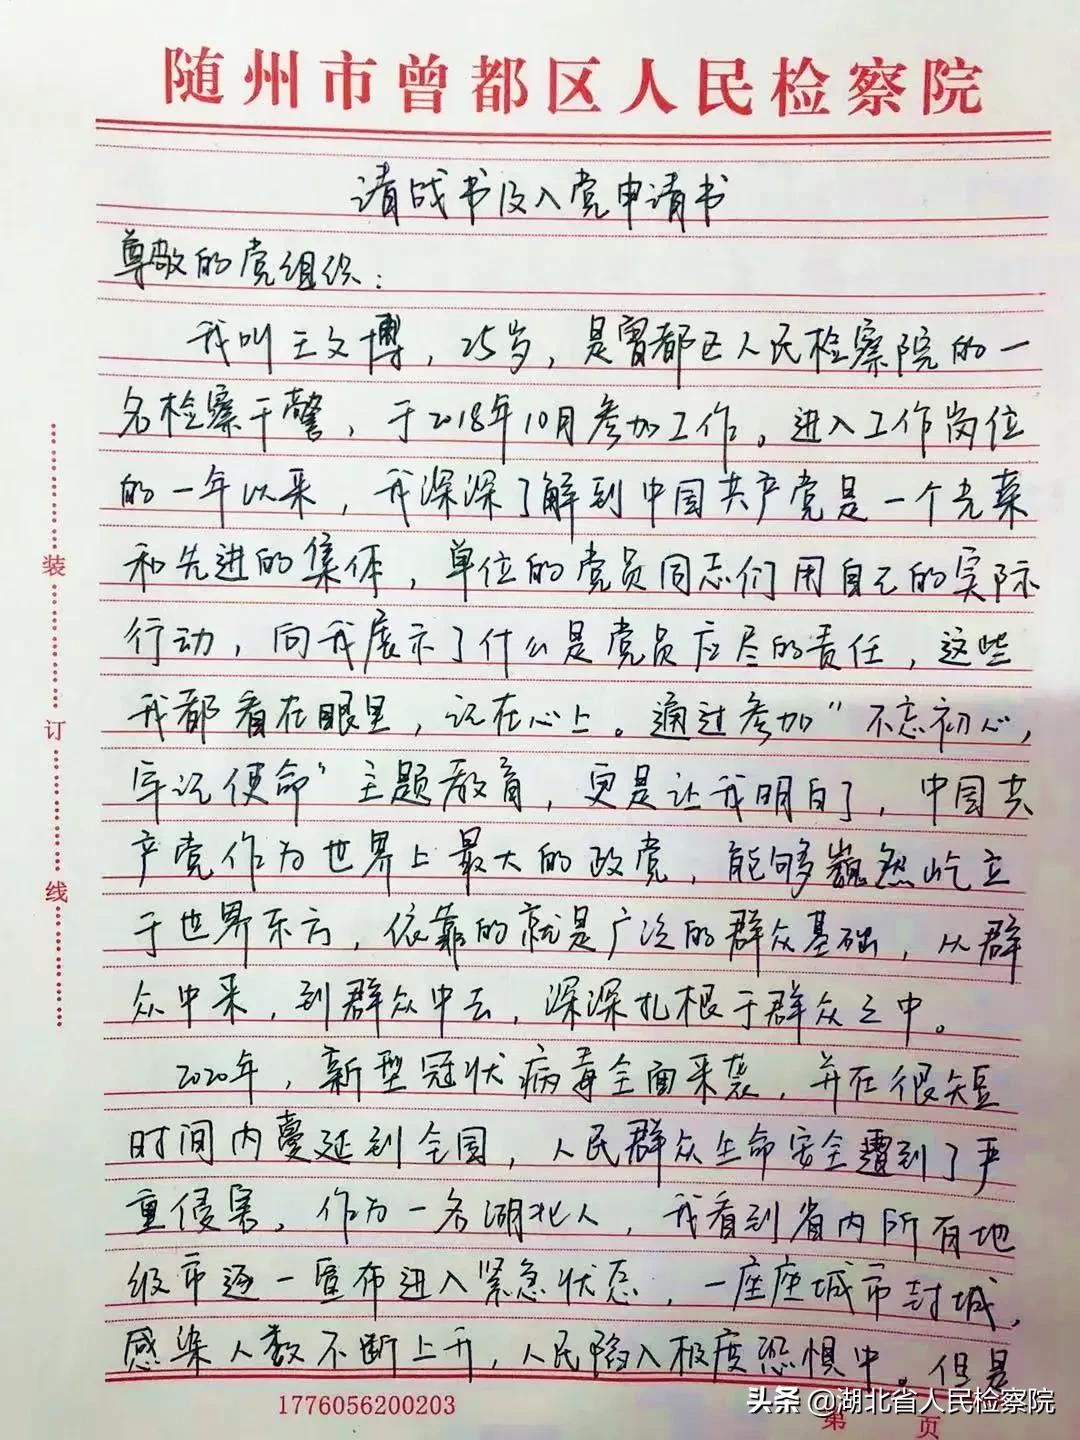 随州市曾都区人民检察院
请战书及入党申请书
尊敬的党组织：
我叫王文博，25岁，是曾都区人民检察院的一
名检察干警，于2018年10月参加工作。进入工作岗位
的一年以来，我深深了解到中国共产党是一个光荣
和先进的集体，单位的党员同志们用自己的实际
行动，向我展示了什么是党员应尽的责任，这些
我都看在眼里，记在心上。通过参加“不忘初心，
牢记使命”主题教育，更是让我明白了，中国共
产党作为世界上最大的政党，能够巍然屹立
于世界东方，依靠的就是广泛的群众基础，从群
众中来，到群众中去，深深扎根于群众之中。
2020年，新型冠状病毒全面来袭，并在很短
时间内蔓延到全国，人民群众生命安全遭到了严
重侵害。作为一名湖北人，我看到省内所有地
级市逐一宣布进入紧急状态，一座座城市封城，
感染人数不断上升，人民陷入极度恐惧中。但是
装
订
线
1776056200203
第 页
头条@湖北省人民检察院